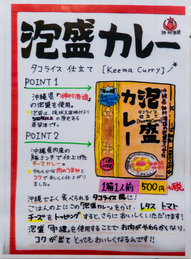 泡盛カレー
タコライス 仕立て [Keema Curry]
POINT 1
沖縄県「神村酒造」
の泡盛を使用。
POINT 2
沖縄県内産の
豚ミンチで仕上げた
キーマカレー。
泡盛
カレー
1箱1人前 500円
沖縄でよく食べられるタコライス風に!
ごはんの上にこの泡盛カレーをかけ、レタス トマト
チーズをトッピングすると、さらにおいしくいただけます!
泡盛を使用することでお肉がやわらかくなり、
コクが出てとってもおいしくなるんです!!